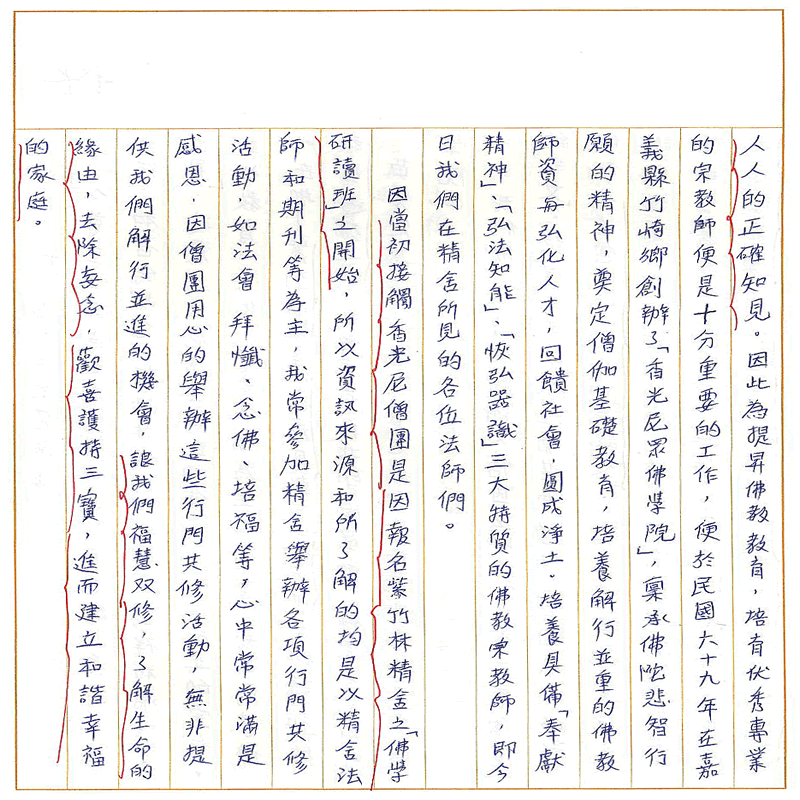 人人的正確知見。因此為提昇佛教教育，培育优秀專業
的宗教師便是十分重要的工作，便於民國六十九年在嘉
義縣竹崎鄉創辦了「香光尼眾佛學院」，稟承佛陀悲智行
願的精神，奠定僧伽基礎教育，培養解行並重的佛教
師資每弘化人才，回饋社會，圓成淨土。培養具備「奉獻
精神」、「弘法知能」、「恢弘器識」三大特質的佛教宗教師，即今
日我們在精舍所見的各位法師們。
因當初接觸香光尼僧團是因報名紫竹林精舍之「佛學
研讀班」之開始，所以資訊來源和所了解的均是以精舍法
師和期刊等為主，我常參加精舍舉辦各項行門共修
活動，如法會、拜懺、念佛、培福等，心中常常滿是
感恩，因僧團用心的舉辦這些行門共修活動，無非提
供我們解行並進的機會，讓我們福慧双修，了解生命的
緣由，去除妄念，歡喜護持三寶，進而建立和諧幸福
的家庭。